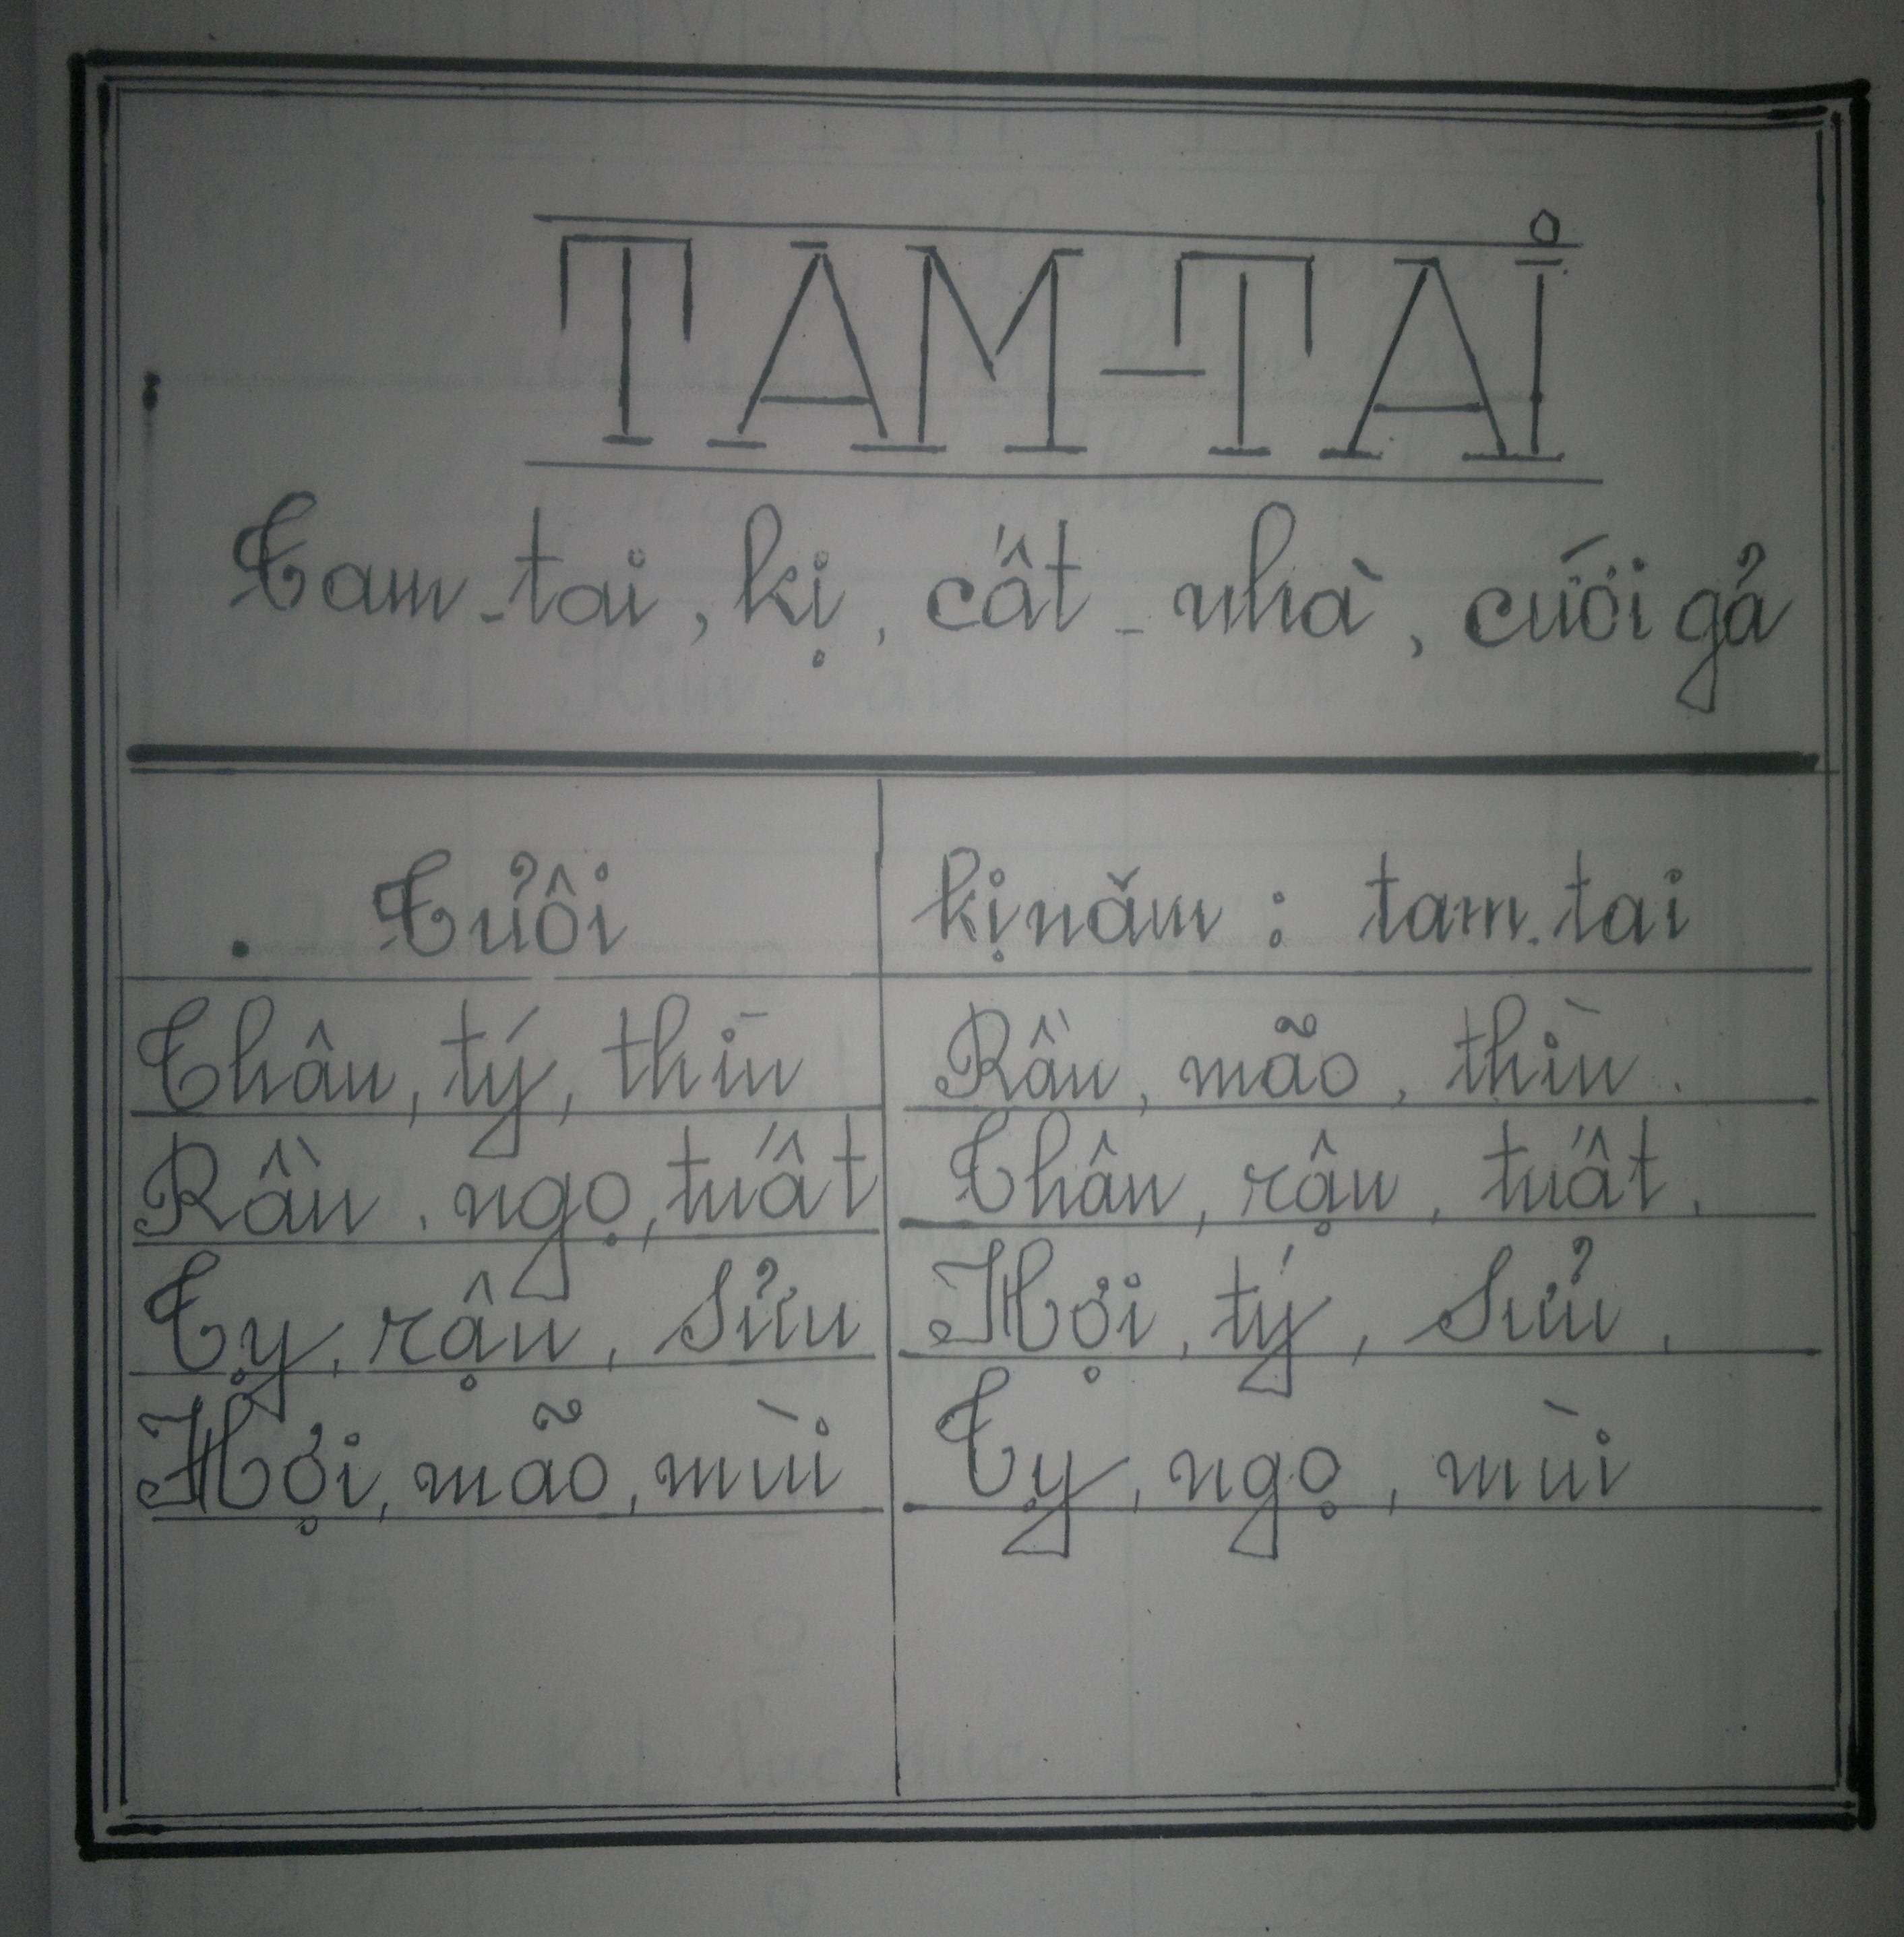 TAM-TAI
Tam-tai, kị, cất-nhà, cưới gả
Tuổi kị năm: tam.tai
Thân, tý, thìn Rần, mão, thìn.
Rần, ngọ, tuất Thân, rậu, tuất.
Tỵ, rậu, Sửu Hợi, tý, Sửu,
Hợi, mão, mùi Tỵ, ngọ, mùi